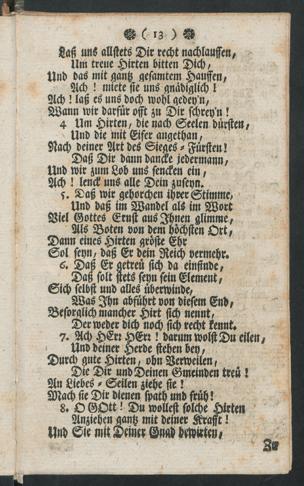 ( 13 )
Laß uns allstets Dir recht nachlauffen,
Um treue Hirten bitten Dich,
Und das mit gantz gesamtem Hauffen,
Ach ! miete sie uns gnädiglich !
Ach ! laß es uns doch wohl gedey'n,
Wann wir darfür offt zu Dir schrey'n !
4 Um Hirten, die nach Seelen dürsten,
Und die mit Eifer angethan,
Nach deiner Art des Sieges-Fürsten !
Daß Dir dann dancke jedermann,
Und wir zum Lob uns sencken ein,
Ach ! lenck uns alle Dein zuseyn.
5. Daß wir gehorchen ihrer Stimme,
Und daß im Wandel als im Wort
Viel Gottes Ernst aus Ihnen glimme,
Als Boten von dem höchsten Ort,
Dann eines Hirten gröste Ehr
Sol seyn, daß Er dein Reich vermehr.
6. Daß Er getreu sich da einfinde,
Daß solt stets seyn sein Element,
Sich selbst und alles überwinde,
Was Ihn abführt von diesem End,
Besorglich mancher Hirt sich nennt,
Der weder dich noch sich recht kennt.
7. Ach HErr HErr ! darum wolst Du eilen,
Und deiner Herde stehen bey,
Durch gute Hirten, ohn Verweilen,
Die Dir und Deinen Gmeinden treü !
An Liebes-Seilen ziehe sie !
Mach sie Dir dienen spath und früh !
8. O GOtt ! Du wollest solche Hirten
Anziehen gantz mit deiner Krafft !
Und Sie mit Deiner Gnad bewirten,